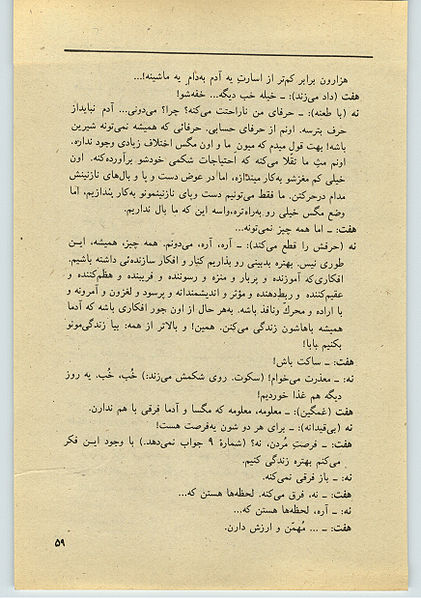 هزارون برابر کم‌تر از اسارتِ یه آدم به‌دام یه ماشینه!...
هفت (داد می‌زند): ــ خیله خب دیگه... خفه‌شو!
نه (با طعنه): ــ حرفای من ناراحتت می‌کنه؟ چرا؟ می‌دونی... آدم نبایداز
حرف بترسه. اونم از حرفای حسابی. حرفائی که همیشه نمی‌تونه شیرین
باشه! بهت قول میدم که میون ما و اون مگس اختلاف زیادی وجود نداره.
اونم مثِ ما تقلّا می‌کنه که احتیاجات شکمی خودشو برآورده‌کنه. اون
خیلی کم مغزشو به‌کار میندازه، اما در عوض دست و پا و بال‌های نازنینش
مدام درحرکتن. ما فقط می‌تونیم دست وپای نازنینمونو به‌کار بندازیم، اما
وضع مگس خیلی رو به‌راه‌تره، واسه این که ما بال نداریم.
هفت: ــ اما همه چیز نمی‌تونه...
نه (حرفش را قطع می‌کند): ــ آره، آره، می‌دونم. همه چیز، همیشه، ایـن
طوری نیس. بهتره بدبینی رو بذاریم کنار و افکار سازنده‌ئی داشته باشیم.
افکاری‌که آموزنده و پربار و منزه و رسوننده و فریبنده و هظم‌کننده و
عقیم‌کننده و ربط‌دهنده و مؤثر و اندیشمندانه و پرسود و لغزون و آمرونه و
با اراده و محرک ونافذ باشه. به‌هر حال از اون جور افکاری باشه که آدما
همیشه باهاشون زندگی می‌کنن. همین! و بالاتر از همه: بیا زندگی‌مونو
بکنیم بابا!
هفت: ــ ساکت باش!
نه: ــ معذرت می‌خوام! (سکوت. روی شکمش می‌زند:) خُب، خُب. یه روز
دیگه هم غذا خوردیم!
هفت (غمگین): ــ معلومه، معلومه که مگسا و آدما فرقی با هم ندارن.
نه (بی‌قیدانه): ــ برای هر دو شون یه‌فرصت هست!
هفت: ــ فرصتِ مُردن، نه؟ (شمارهٔ ۹ جواب نمی‌دهد.) با وجود ایـن فکر
می‌کنم بهتره زندگی کنیم.
نه: ــ باز فرقی نمی‌کنه.
هفت: ــ نه، فرق می‌کنه. لحظه‌ها هستن که...
نه: ــ آره، لحظه‌ها هستن که...
هفت: ــ ... مُهمّن و ارزش دارن.
۵۹